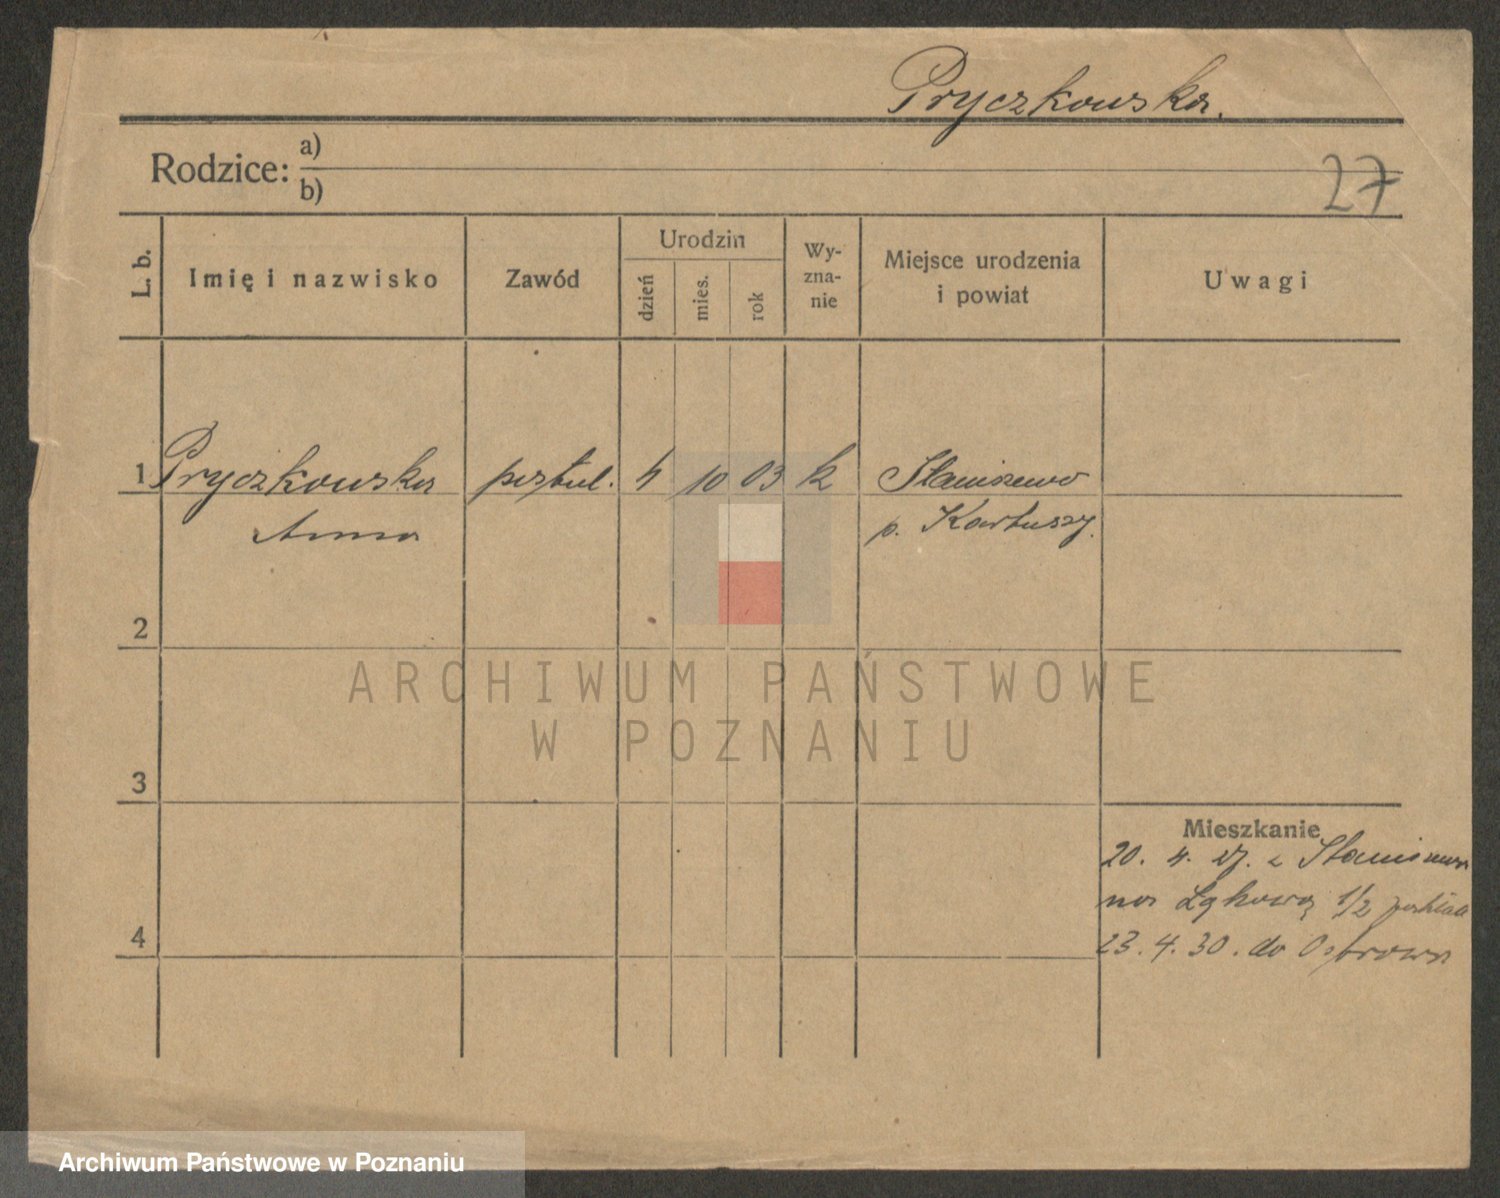 Pryczkowska.
Rodzice: a)
b)
27
L. b.
Imię i nazwisko
Zawód
Urodzin
dzień
mies.
rok
Wy-
zna-
nie
Miejsce urodzenia
i powiat
Uwagi
1 Pryczkowska postul. 4 10 03 k Staniszewo
Anna p. Kartuszy.
2
ARCHIWUM PAŃSTWOWE
W POZNANIU
3
Mieszkanie
20. 4. 27. z Staniszewa
na Łąkową 1/2
4
23. 4. 30. do Ostrowa
Archiwum Państwowe w Poznaniu